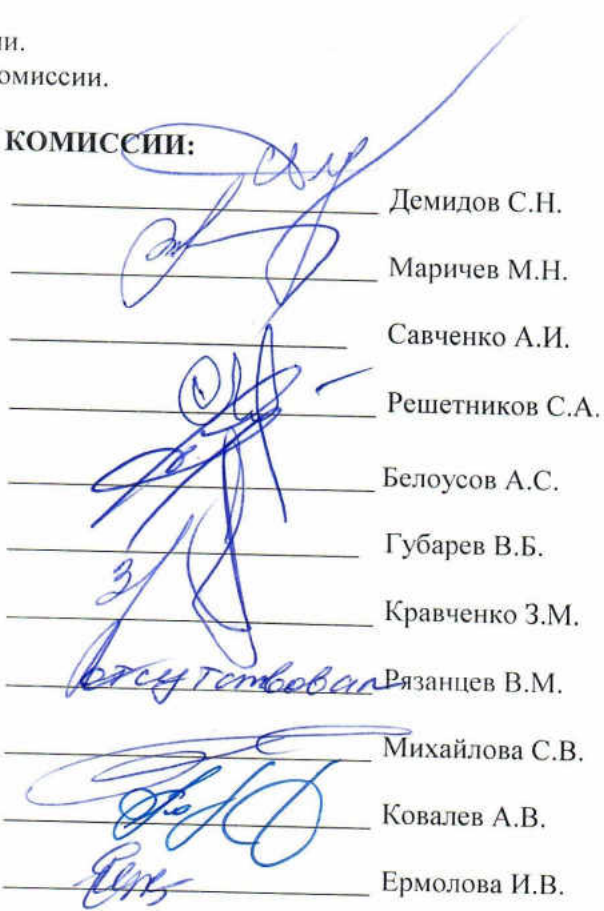 ии.
омиссии.
КОМИССИИ:
Демидов С.Н.
Маричев М.Н.
Савченко А.И.
Решетников С.А.
Белоусов А.С.
Губарев В.Б.
Кравченко З.М.
отсутствовал Рязанцев В.М.
Михайлова С.В.
Ковалев А.В.
Ермолова И.В.